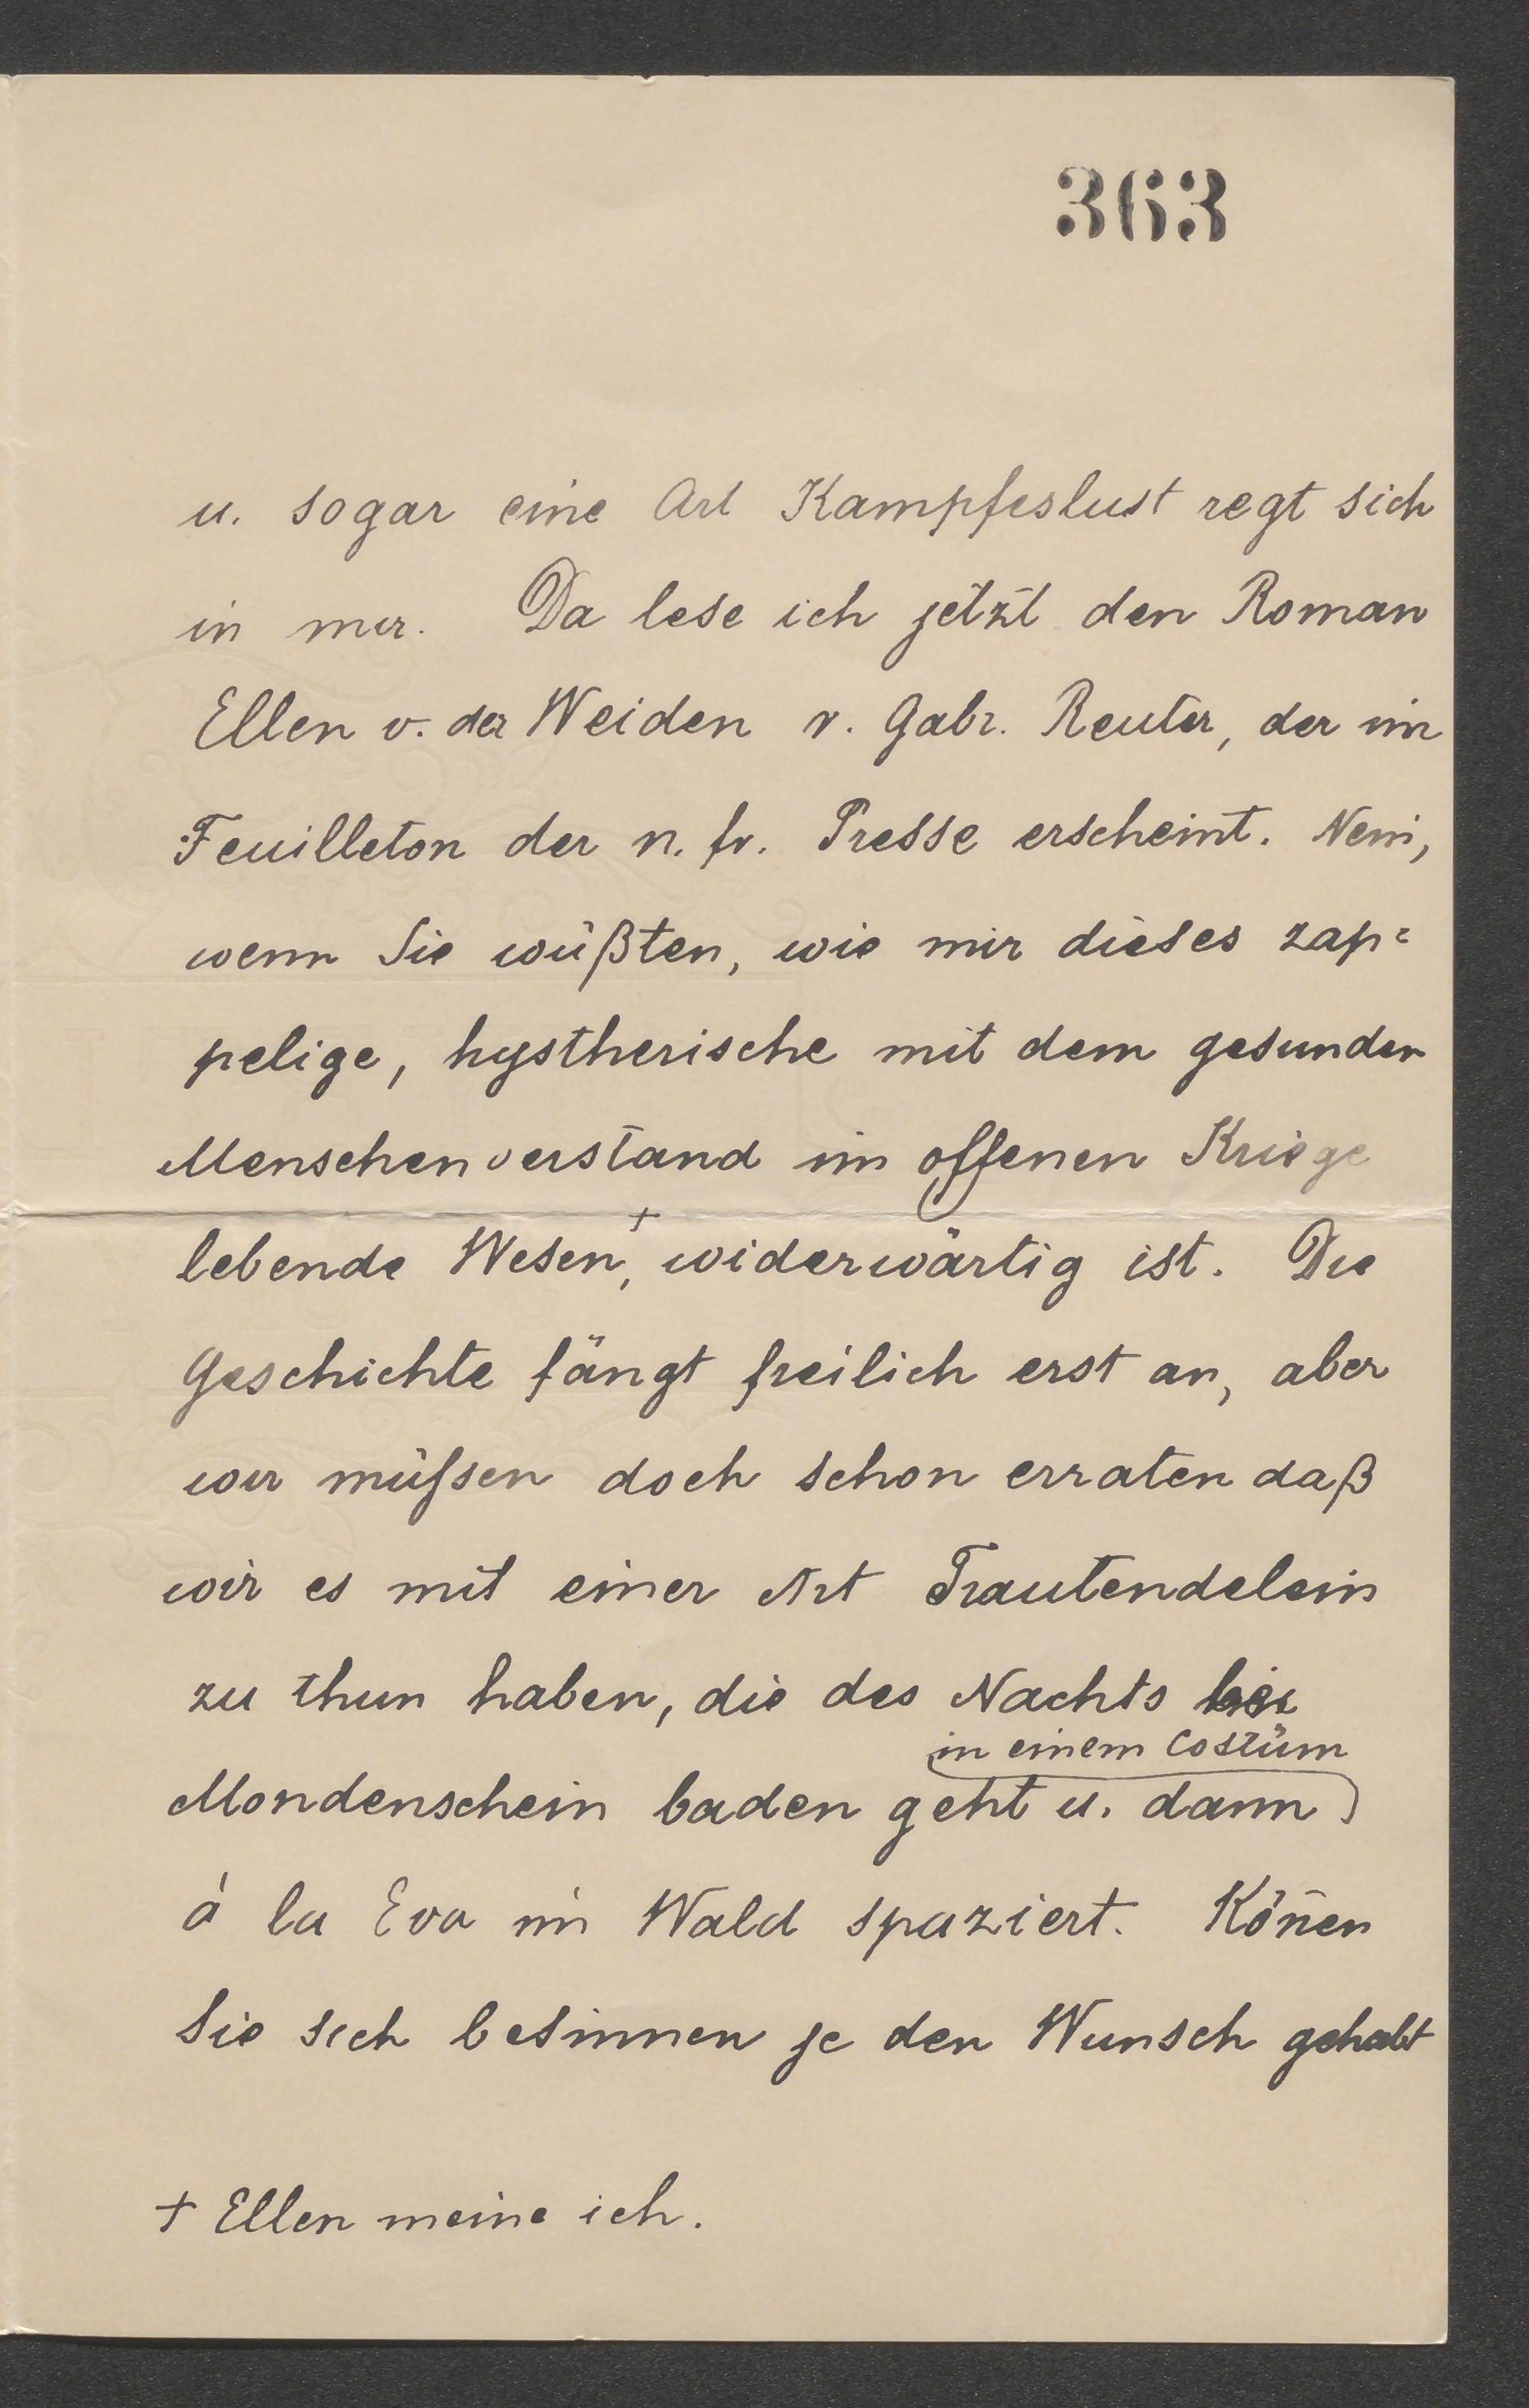 363
u. sogar eine Art Kampfeslust regt sich
in mir. Da lese ich jetzt den Roman
Ellen v. der Weiden v. Gabr. Reuter, der im
Feuilleton der n. fr. Presse erscheint. Nein,
wenn Sie wüßten, wie mir dieses zap=
pelige, hystherische mit dem gesunden
Menschenverstand im offenen Kriege
lebende Wesen,+ widerwärtig ist. Die
Geschichte fängt freilich erst an, aber
wir müßsen doch schon erraten daß
wir es mit einer Art Trautendelein
zu thun haben, die des Nachts bei
in einem Costüm
Mondenschein baden geht u. dann
á la Eva im Wald spaziert. Kön̄en
Sie sich besinnen je den Wunsch gehabt
+ Ellen meine ich.